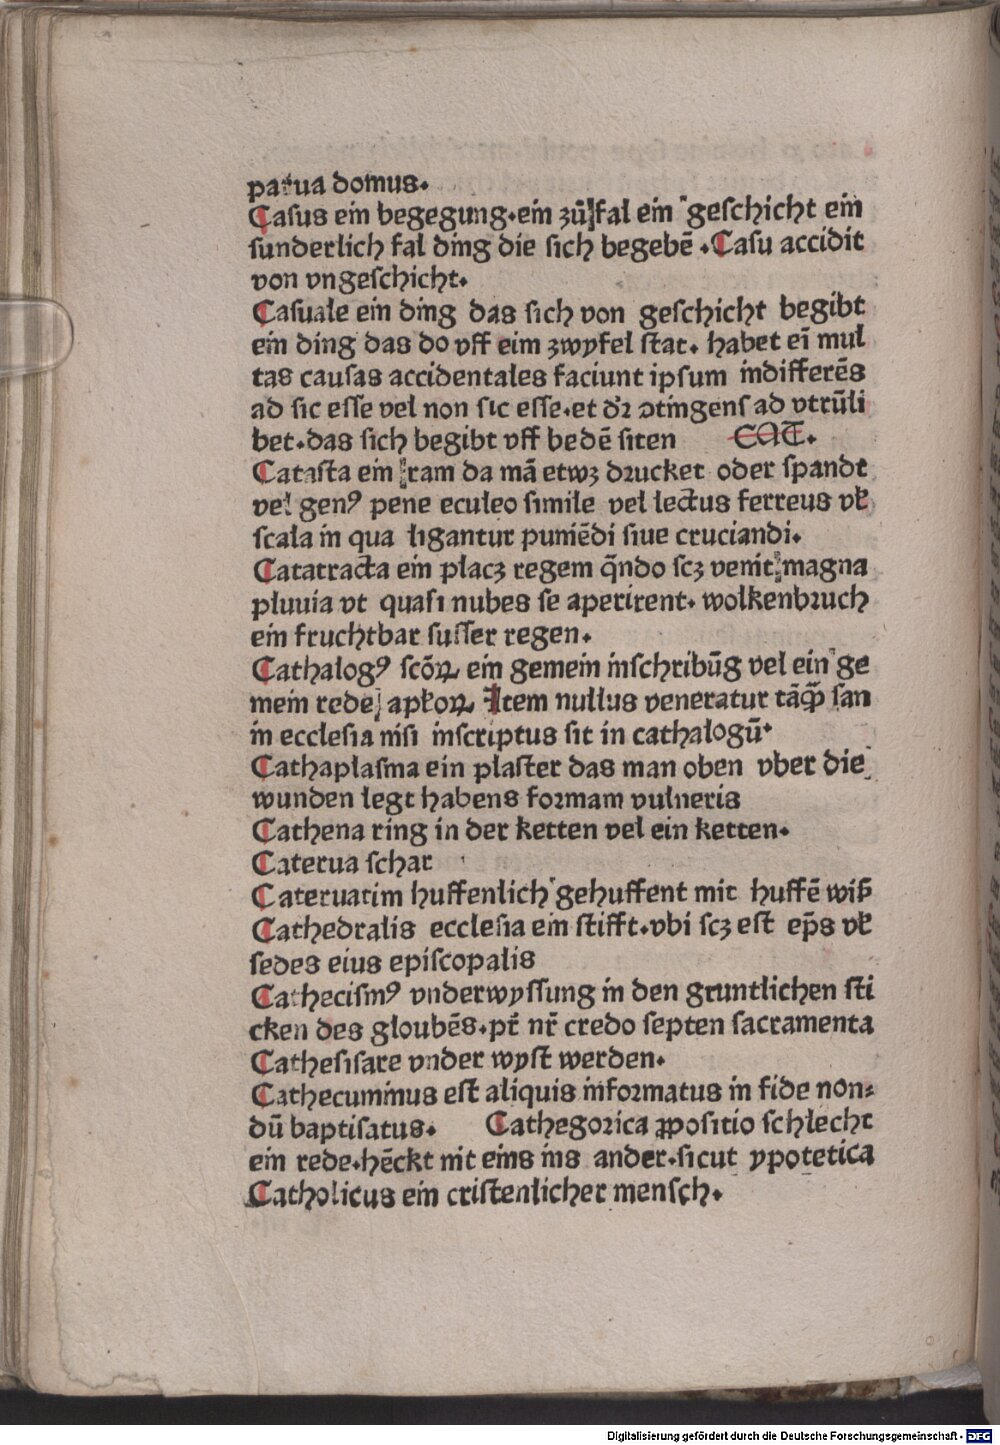 parua domus.
Casus ein begegung.ein zůfal ein geschicht ein
sunderlich fal ding die sich begebē .Casu accidit
von vngeschicht.
Casuale ein ding das sich von geschicht begibt
ein ding das do vff eim zwyfel stat. habet eī mul
tas causas accidentales faciunt ipsum indifferēs
ad sic esse vel non sic esse.et dꝛ ↄtingens ad vtrūli
bet.das sich begibt vff bedē siten CAT.
Catasta ein ram da mā etwz dꝛucket oder spandt
vel genꝰ pene eculeo simile vel lectus ferreus vł
scala in qua ligantur puniēdi siue cruciandi.
Catatracta ein placz regem q̄ndo scz venit magna
pluuia vt quasi nubes se aperirent. wolkenbꝛuch
ein fruchtbar susser regen.
Cathalogꝰ scōꝝ ein gemein inschribūg vel ein ge
mein rede apłoꝝ Item nullus veneratur tāꝙ̄ san
in ecclesia nisi inscriptus sit in cathalogū
Cathaplasma ein plaster das man oben vber die
wunden legt habens foꝛmam vulneris
Cathena ring in der ketten vel ein ketten.
Caterua schar
Cateruatim huffenlich gehuffent mit huffē wiß
Cathedralis ecclesia ein stifft.vbi scz est ep̄s vł
sedes eius episcopalis
Cathecismꝰ vnderwyssung in den gruntlichen sti
cken des gloubēs.pr̄ nr̄ credo septen sacramenta
Cathesisare vnder wyst werden.
Cathecuminus est aliquis infoꝛmatus in fide non⸗
dū baptisatus. Cathegoꝛica ꝓpositio schlecht
ein rede.hēckt nit eins ins ander.sicut ypotetica
Catholicus ein cristenlicher mensch.
Digitalisierung gefördert durch die Deutsche Forschungsgemeinschaft - DFG